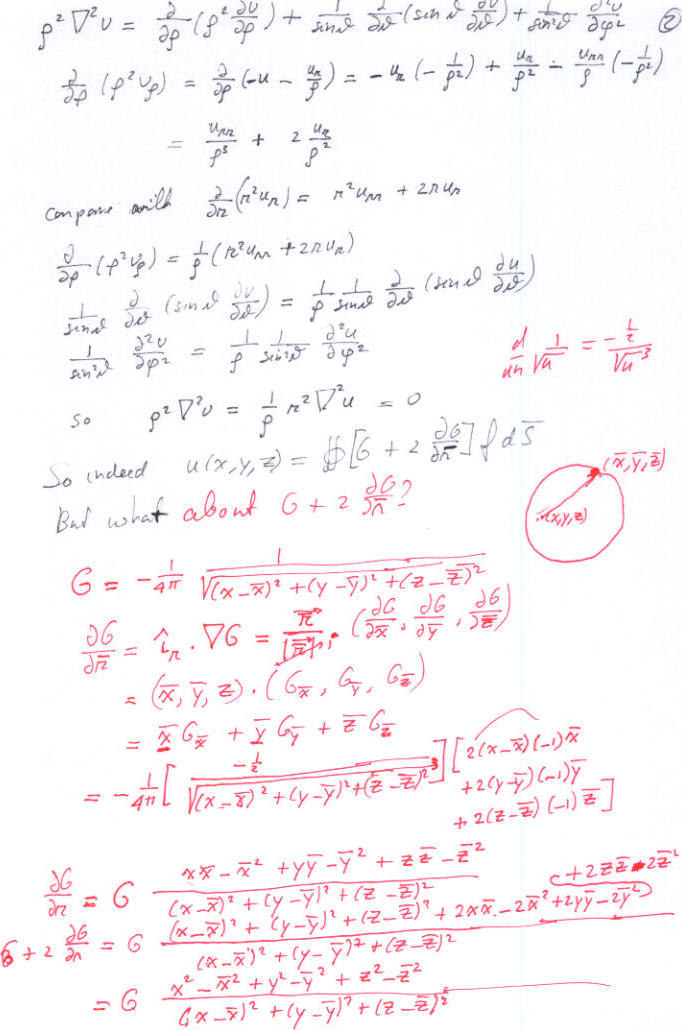 ρ² ∇²υ = ∂/∂ρ (ρ² ∂υ/∂ρ) + 1/sinϑ ∂/∂ϑ (sinϑ ∂υ/∂ϑ) + 1/sin²ϑ ∂²υ/∂φ² ②
∂/∂ρ (ρ²υ_ρ) = ∂/∂ρ (-u - u_r/ρ) = -u_r (-1/ρ²) + u_r/ρ² - u_rr/ρ (-1/ρ²)
= u_rr/ρ³ + 2 u_r/ρ²
compare with ∂/∂r (r²u_r) = r²u_rr + 2ru_r
∂/∂ρ (ρ²υ_ρ) = 1/ρ (r²u_rr + 2ru_r)
1/sinϑ ∂/∂ϑ (sinϑ ∂υ/∂ϑ) = 1/ρ 1/sinϑ ∂/∂ϑ (sinϑ ∂u/∂ϑ)
1/sin²ϑ ∂²υ/∂φ² = 1/ρ 1/sin²ϑ ∂²u/∂φ²
d/du 1/√u = -½/√u³
so ρ²∇²υ = 1/ρ r²∇²u = 0
So indeed u(x,y,z) = ∯[G + 2 ∂G/∂r̄] f dS̄
(x̄,ȳ,z̄)
(x,y,z)
But what about G + 2 ∂G/∂r̄?
G = -1/4π 1/√((x-x̄)² + (y-ȳ)² + (z-z̄)²)
∂G/∂r̄ = î_r · ∇G = r̄/|r̄| · (∂G/∂x̄, ∂G/∂ȳ, ∂G/∂z̄)
= (x̄, ȳ, z) · (G_x̄, G_ȳ, G_z̄)
= x̄ G_x̄ + ȳ G_ȳ + z̄ G_z̄
= -1/4π [ -½/√((x-x̄)² + (y-ȳ)² + (z-z̄)²)³ ] [ 2(x-x̄)(-1)x̄
+2(y-ȳ)(-1)ȳ
+2(z-z̄)(-1)z̄ ]
∂G/∂r̄ = G (xx̄ - x̄² + yȳ - ȳ² + zz̄ - z̄²)/((x-x̄)² + (y-ȳ)² + (z-z̄)²)
G + 2 ∂G/∂r = G ((x-x̄)² + (y-ȳ)² + (z-z̄)² + 2xx̄ - 2x̄² + 2yȳ - 2ȳ² + 2zz̄ - 2z̄²)/((x-x̄)² + (y-ȳ)² + (z-z̄)²)
= G (x² - x̄² + y² - ȳ² + z² - z̄²)/((x-x̄)² + (y-ȳ)² + (z-z̄)²)